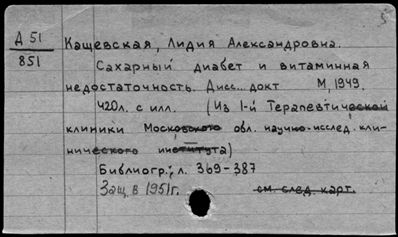 Д 51
851
Кащевская, Лидия Александровна.
Сахарный диабет и витаминная
недостаточность. Дисс.. докт М, 1949.
420л. с илл. (Из 1-й Терапевтической
клиники Московского обл. научно-исслед. кли-
нического института)
Библиогр.; л. 369-387
Защ. в 1951г. см. след. карт.